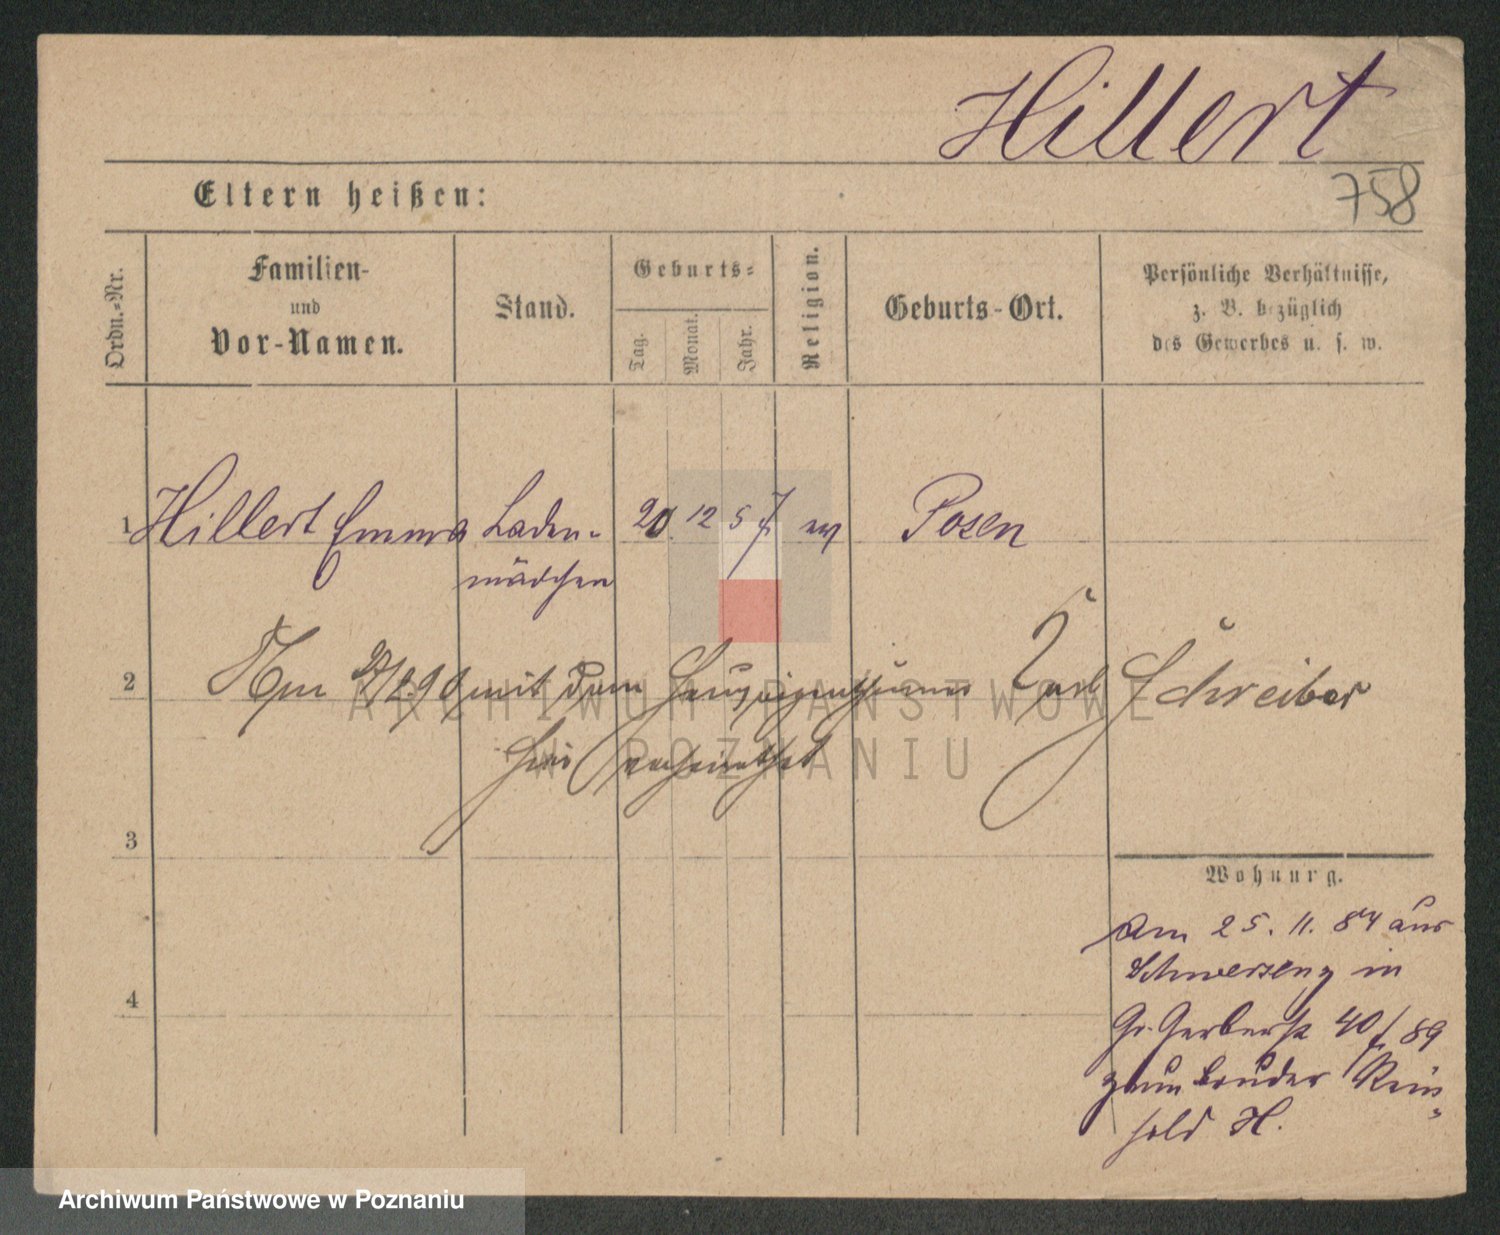 Hillert
758
Eltern heißen:
Ordn.-Nr.
Familien-
und
Vor-Namen.
Stand.
Geburts-
Tag.
Monat.
Jahr.
Religion.
Geburts-Ort.
Persönliche Verhältnisse,
z. B. bezüglich
des Gewerbes u. s. w.
1 Hillert Emma Laden- 20. 12 57 ev Posen
mädchen
2 Am mit dem Hauseigenthümer Carl Schreiber
hier verheirathet
3
Wohnung.
Am 25. 11. 84 aus
Schwersenz in
4
Gr. Gerberstr 40 f. 89
zum Bruder Rein-
hold H.
ARCHIWUM PAŃSTWOWE
W POZNANIU
Archiwum Państwowe w Poznaniu